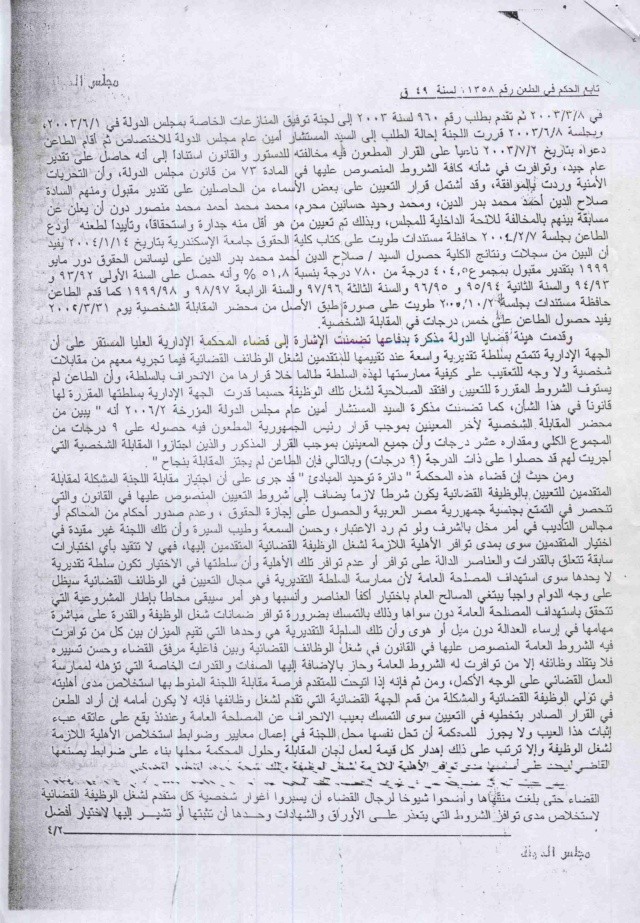 مجلس الدولة
تابع الحكم في الطعن رقم ١٣٥٨٠ لسنة ٤٩ ق
في ٢٠٠٣/٣/٨ ثم تقدم بطلب رقم ٩٦٠ لسنة ٢٠٠٣ إلى لجنة توفيق المنازعات الخاصة بمجلس الدولة في ٢٠٠٣/٦/١،
وبجلسة ٢٠٠٣/٦/٨ قررت اللجنة إحالة الطلب إلى السيد المستشار أمين عام مجلس الدولة للاختصاص ثم أقام الطاعن
دعواه بتاريخ ٢٠٠٣/٧/٢ ناعياً على القرار المطعون فيه مخالفته للدستور والقانون استناداً إلى أنه حاصل على تقدير
عام جيد، وتوافرت في شأنه كافة الشروط المنصوص عليها في المادة ٧٣ من قانون مجلس الدولة، وأن التحريات
الأمنية وردت بالموافقة، وقد أشتمل قرار التعيين على بعض الأسماء من الحاصلين على تقدير مقبول ومنهم السادة
صلاح الدين أحمد محمد بدر الدين، ومحمد وحيد حسانين محرم، محمد محمد أحمد محمد منصور دون أن يعلن عن
مسابقة بينهم بالمخالفة للائحة الداخلية للمجلس، وبذلك تم تعيين من هو أقل منه جدارة واستحقاقاً، وتأييداً لطعنه أودع
الطاعن بجلسة ٢٠٠٤/٢/٧ حافظة مستندات طويت على كتاب كلية الحقوق جامعة الإسكندرية بتاريخ ٢٠٠٤/١/١٤ يفيد
أن البين من سجلات ونتائج الكلية حصول السيد / صلاح الدين أحمد محمد بدر الدين على ليسانس الحقوق دور مايو
١٩٩٩ بتقدير مقبول بمجموع ٤٠٤,٥ درجة من ٧٨٠ درجة بنسبة ٥١,٨ % وأنه حصل على السنة الأولى ٩٣/٩٢ و
٩٤/٩٣ والسنة الثانية ٩٥/٩٤ و ٩٦/٩٥ والسنة الثالثة ٩٧/٩٦ والسنة الرابعة ٩٨/٩٧ و ١٩٩٩/٩٨ كما قدم الطاعن
حافظة مستندات بجلسة طويت على صورة طبق الأصل من محضر المقابلة الشخصية يوم ٢٠٠٤/٣/٣١
يفيد حصول الطاعن على خمس درجات في المقابلة الشخصية.
وقدمت هيئة قضايا الدولة مذكرة بدفاعها تضمنت الإشارة إلى قضاء المحكمة الإدارية العليا المستقر على أن
الجهة الإدارية تتمتع بسلطة تقديرية واسعة عند تقييمها للمتقدمين لشغل الوظائف القضائية فيما تجريه معهم من مقابلات
شخصية ولا وجه للتعقيب على كيفية ممارستها لهذه السلطة طالما خلا قرارها من الانحراف بالسلطة، وأن الطاعن لم
يستوف الشروط المقررة للتعيين وافتقد الصلاحية لشغل تلك الوظيفة حسبما قدرت الجهة الإدارية بسلطتها المقررة لها
قانوناً في هذا الشأن، كما تضمنت مذكرة السيد المستشار أمين عام مجلس الدولة المؤرخة ٢٠٠٦/٢ أنه " يبين من
محضر المقابلة الشخصية لأخر المعينين بموجب قرار رئيس الجمهورية المطعون فيه حصوله على ٩ درجات من
المجموع الكلي ومقداره عشر درجات وأن جميع المعينين بموجب القرار المذكور والذين اجتازوا المقابلة الشخصية التي
أجريت لهم قد حصلوا على ذات الدرجة (٩ درجات) وبالتالي فإن الطاعن لم يجتز المقابلة بنجاح "
ومن حيث إن قضاء هذه المحكمة " دائرة توحيد المبادئ " قد جرى على أن اجتياز مقابلة اللجنة المشكلة لمقابلة
المتقدمين للتعيين بالوظيفة القضائية يكون شرطاً لازماً يضاف إلى شروط التعيين المنصوص عليها في القانون والتي
تنحصر في التمتع بجنسية جمهورية مصر العربية والحصول على إجازة الحقوق ، وعدم صدور أحكام من المحاكم أو
مجالس التأديب في أمر مخل بالشرف ولو تم رد الاعتبار، وحسن السمعة وطيب السيرة وأن تلك اللجنة غير مقيدة في
اختيار المتقدمين سوى بمدى توافر الأهلية اللازمة لشغل الوظيفة القضائية المتقدمين إليها، فهي لا تتقيد بأي اختبارات
سابقة تتعلق بالقدرات والعناصر الدالة على توافر أو عدم توافر تلك الأهلية وأن سلطتها في الاختيار تكون سلطة تقديرية
لا يحدها سوى استهداف المصلحة العامة لأن ممارسة السلطة التقديرية في مجال التعيين في الوظائف القضائية سيظل
على وجه الدوام واجبا يبتغي الصالح العام باختيار أكفأ العناصر وأنسبها وهو أمر سيبقى محاطا بإطار المشروعية التي
تتحقق باستهداف المصلحة العامة دون سواها وذلك بالتمسك بضرورة توافر ضمانات شغل الوظيفة والقدرة على مباشرة
مهامها في إرساء العدالة دون ميل أو هوى وأن تلك السلطة التقديرية هي وحدها التي تقيم الميزان بين كل من توافرت
فيه الشروط العامة المنصوص عليها في القانون في شغل الوظائف القضائية وبين فاعلية مرفق القضاء وحسن تسييره
فلا يتقلد وظائفه إلا من توافرت له الشروط العامة وحاز بالإضافة إليها الصفات والقدرات الخاصة التي تؤهله لممارسة
العمل القضائي على الوجه الأكمل، ومن ثم فإنه إذا اتيحت للمتقدم فرصة مقابلة اللجنة المنوط بها استخلاص مدى أهليته
في تولي الوظيفة القضائية والمشكلة من قمم الجهة القضائية التي تقدم لشغل وظائفها فإنه لا يكون أمامه إن أراد الطعن
في القرار الصادر بتخطيه في التعيين سوى التمسك بعيب الانحراف عن المصلحة العامة وعندئذ يقع على عاتقه عبء
إثبات هذا العيب ولا يجوز للمحكمة أن تحل نفسها محل اللجنة في إعمال معايير وضوابط استخلاص الأهلية اللازمة
لشغل الوظيفة وإلا ترتب على ذلك إهدار كل قيمة لعمل لجان المقابلة وحلول المحكمة محلها بناء على ضوابط يصنعها
القاضي ليحدد على أساسها مدى توافر الأهلية اللازمة لشغل الوظيفة
القضاء حتى بلغت منتهاها وأضحوا شيوخا لرجال القضاء أن يسبروا أغوار شخصية كل متقدم لشغل الوظيفة القضائية
لاستخلاص مدى توافر الشروط التي يتعذر على الأوراق والشهادات وحدها أن تثبتها أو تشير إليها لاختيار أفضل
٤/٢
مجلس الدولة